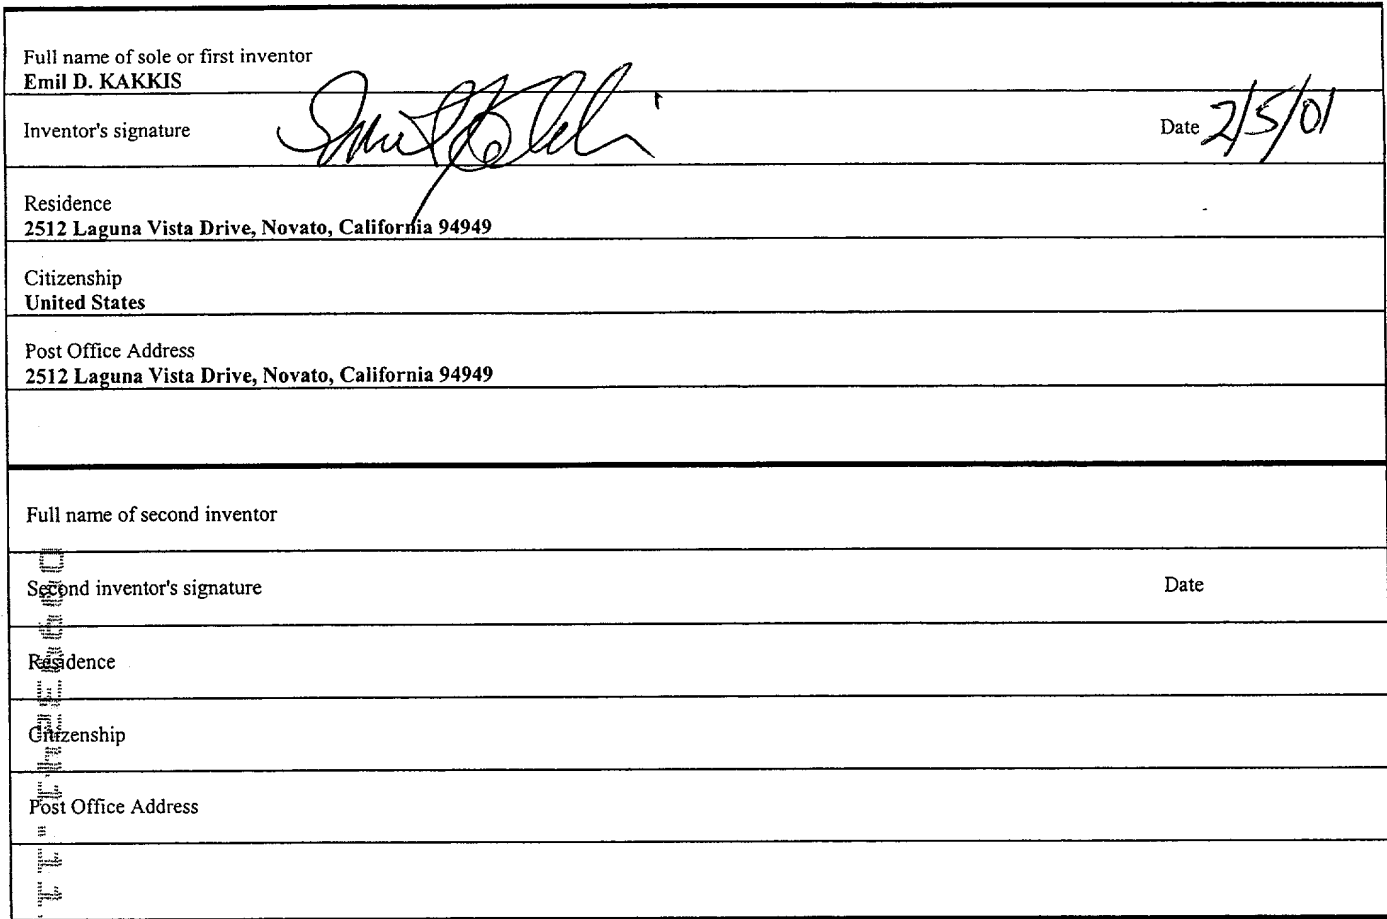 Full name of sole or first inventor
Emil D. KAKKIS
Inventor's signature
Date 2/5/01
Residence
2512 Laguna Vista Drive, Novato, California 94949
Citizenship
United States
Post Office Address
2512 Laguna Vista Drive, Novato, California 94949
Full name of second inventor
Second inventor's signature Date
Residence
Citizenship
Post Office Address